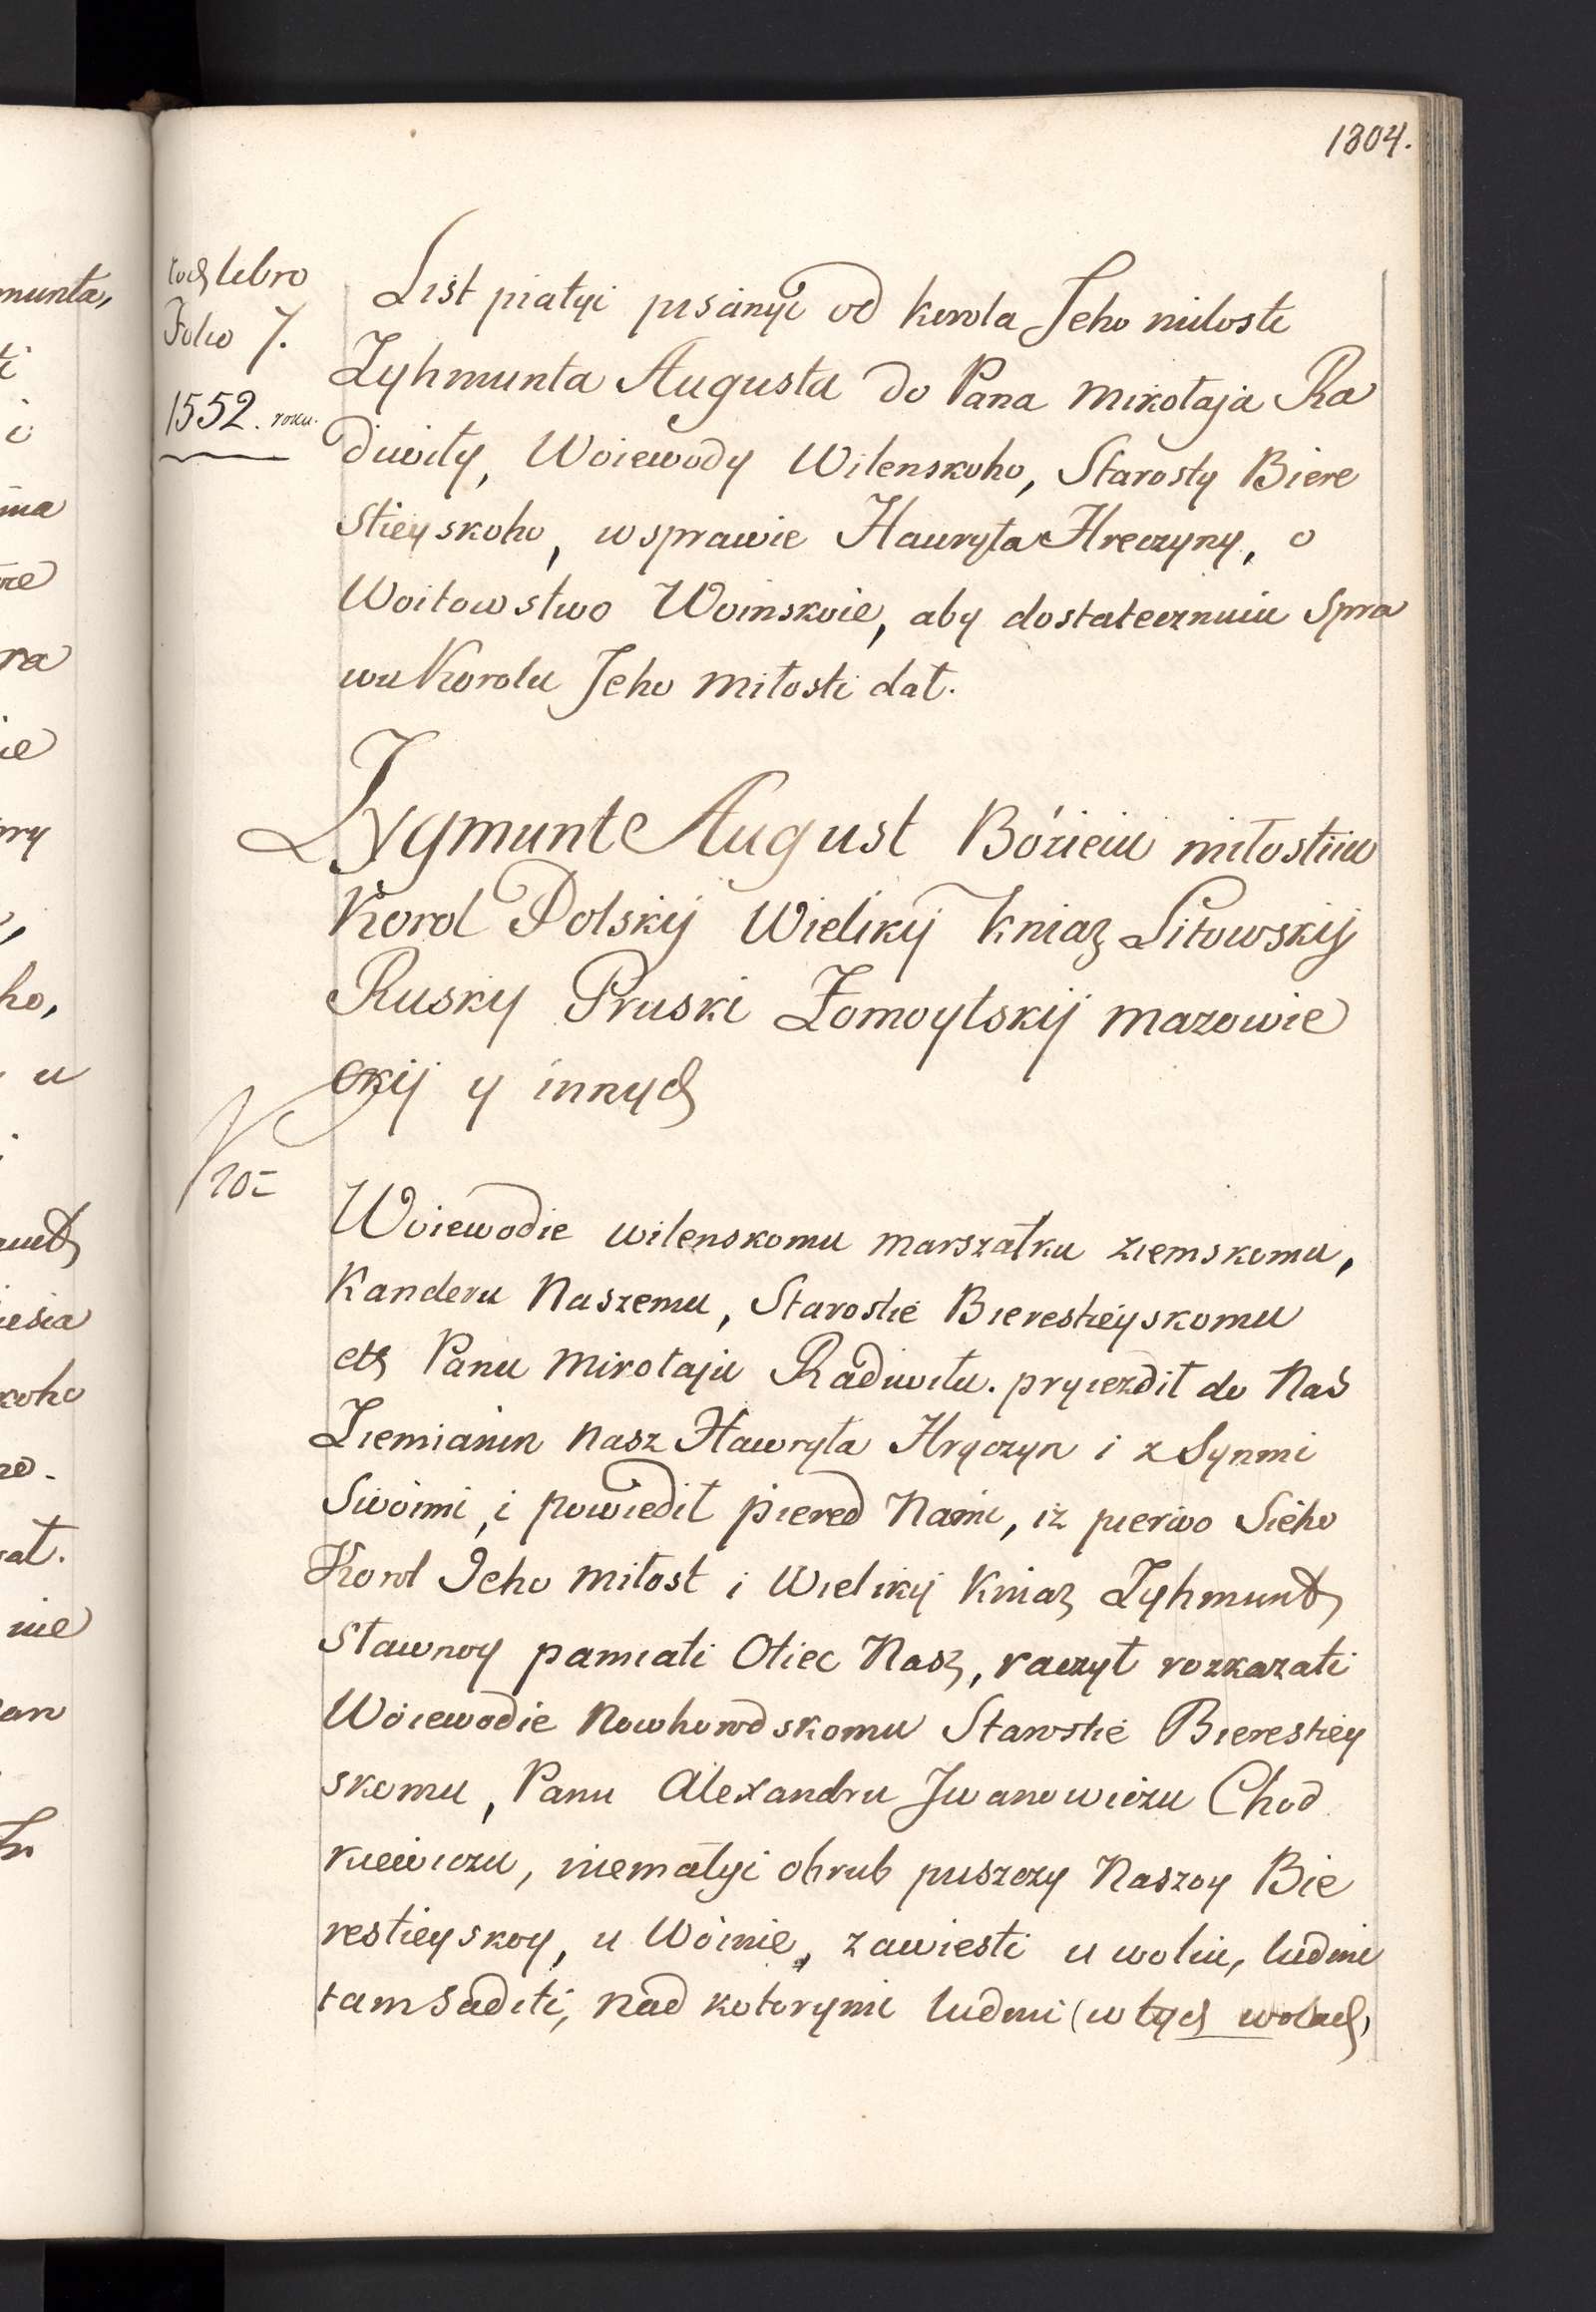 1804.
libro
Folio 7.
1552. roku.
List piatyi pisanyi od korola Jeho milosti
Zyhmunta Augusta do Pana Mikołaja Ra
diwiły, Woiewody Wilenskoho, Starosty Biere
stieyskoho, w sprawie Hawryła Hreczyny, o
Woitowstwo Woinskoie, aby dostatecznuiu spra
wu Korolu Jeho Miłosti dał.
Zygmunt August Bóżieiu miłostiiu
Korol Polskij Wielikij Kniaz Litowskij
Ruskij Pruski Żomoytskij Mazowie
ckij y innych
Woiewodie wilenskomu marszałku ziemskomu,
Kancleru Naszemu, Starostie Bierestieyskomu
etc Panu Mikołaju Radiwiłu. pryiezdił do Nas
Ziemianin Nasz Hawryła Hryczyn i z Synmi
Swoimi, i powiedił piered Nami, iż pierwo Sieho
Korol Jeho Miłost i Wielikij Kniaz Zyhmunt
Sławnoy pamiati Otiec Nasz, raczył rozkazati
Woiewodie Nowhorodskomu Starostie Bierestiey
skomu, Panu Alexandru Jwanowiczu Chod
kiewiczu, niemałyi ohrub puszczy Naszoy Bie
restieyskoy, u Woinie, zawiesti u woliu, ludmi
tam Saditi, nad kotorymi ludmi (w tych wolach,
munta,
ti
i
ma
ra
ie
ry
ho,
u
iesia
koho
at.
nie
an